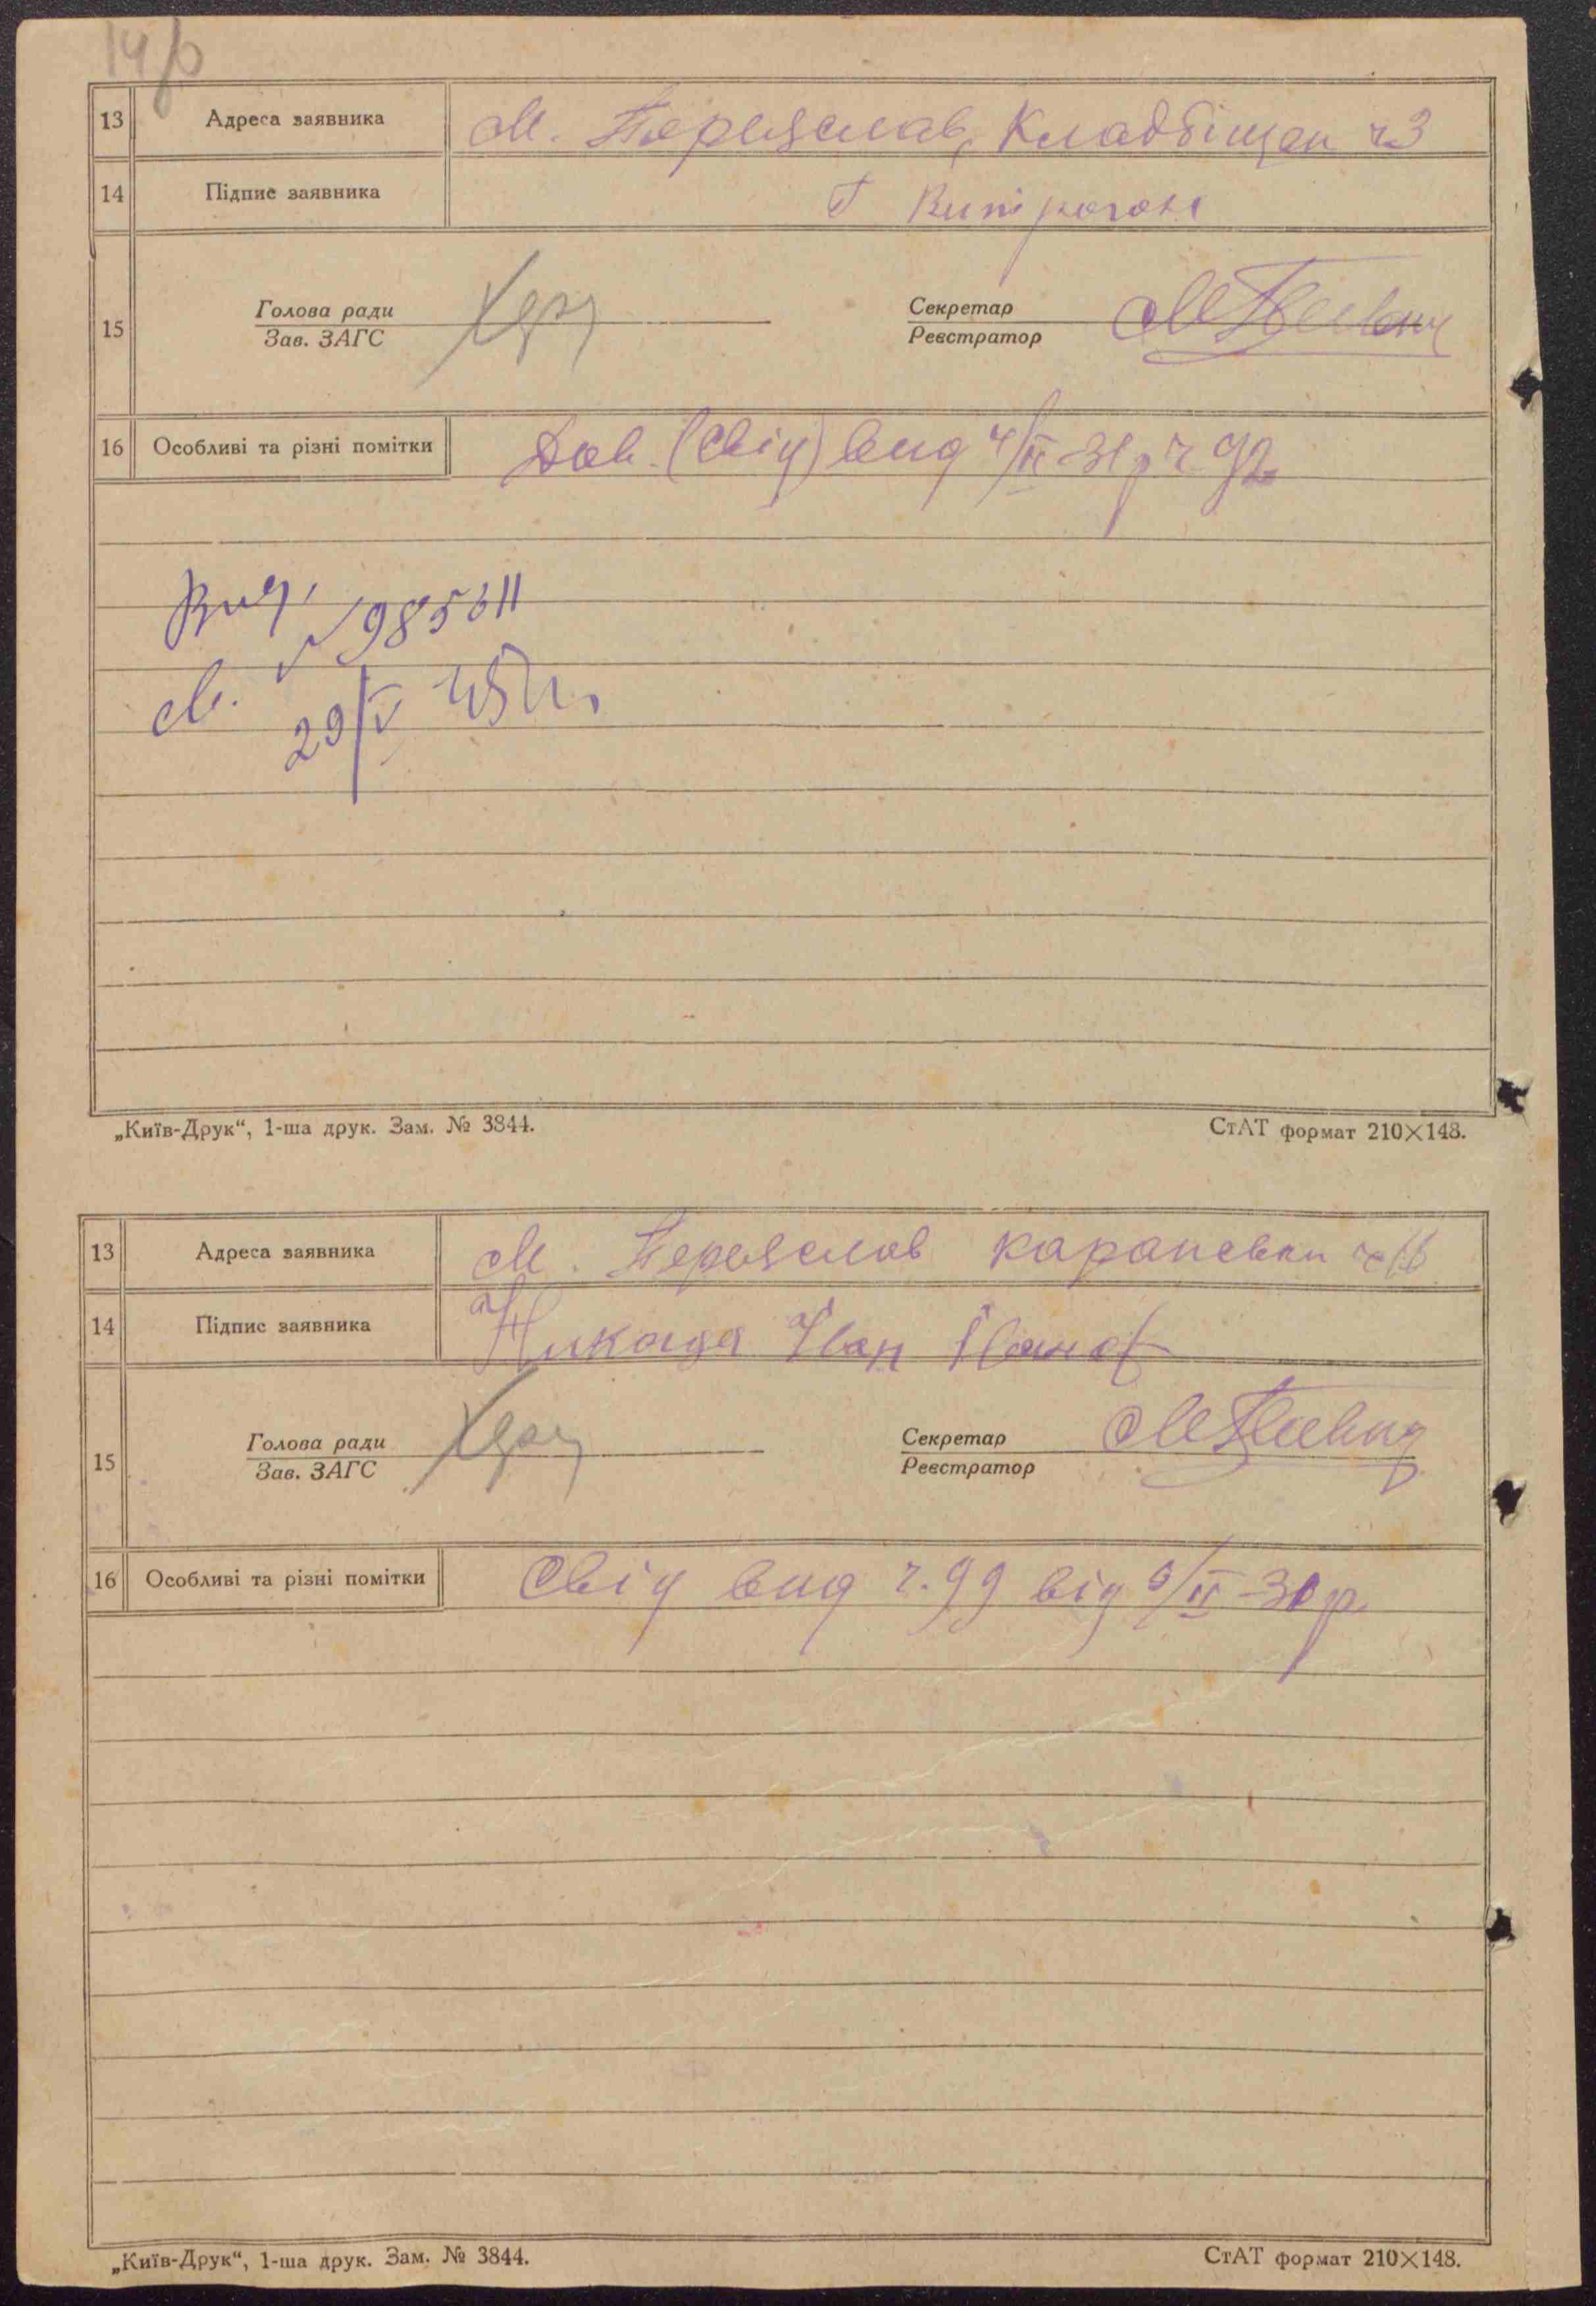 13 Адреса заявника м. Переяслав, Кладбіщен ч 3
14 Підпис заявника Г
15 Голова ради Секретар
Зав. ЗАГС Реєстратор
16 Особливі та різні помітки Дов. (Свід) вид 4/II-31 р ч 92
Вид.
№ 985611
м. 29/V 45 г.
„Київ-Друк“, 1-ша друк. Зам. № 3844. СтАТ формат 210×148.
13 Адреса заявника м. Переяслав
14 Підпис заявника Іван
15 Голова ради Секретар
Зав. ЗАГС Реєстратор
16 Особливі та різні помітки Свід вид ч. 99 від 6/II-31 р.
„Київ-Друк“, 1-ша друк. Зам. № 3844. СтАТ формат 210×148.